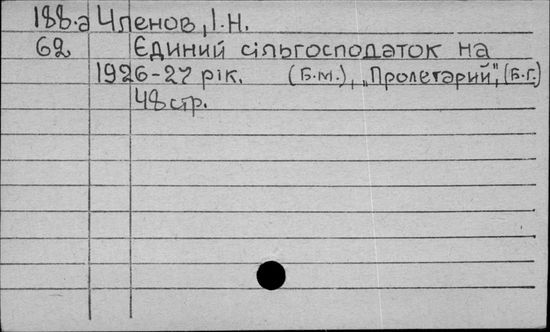 188.а Членов, І.Н.
62 Єдиний сільгосподаток на
1926-27 рік. (Б.М.), „Пролетарий", (Б.Г.)
48 стр.